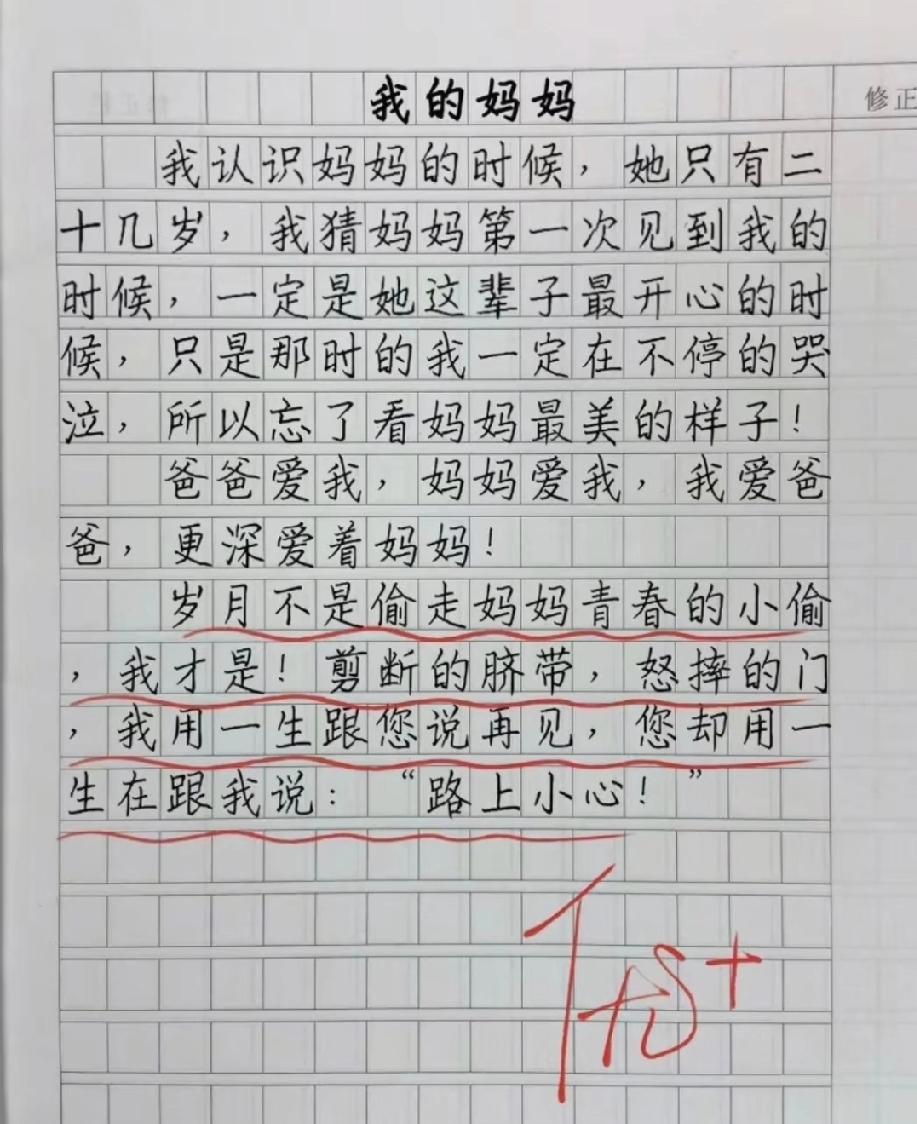 我的妈妈
修正
我认识妈妈的时候，她只有二
十几岁，我猜妈妈第一次见到我的
时候，一定是她这辈子最开心的时
候，只是那时的我一定在不停的哭
泣，所以忘了看妈妈最美的样子！
爸爸爱我，妈妈爱我，我爱爸
爸，更深爱着妈妈！
岁月不是偷走妈妈青春的小偷
，我才是！剪断的脐带，怒摔的门
，我用一生跟您说再见，您却用一
生在跟我说：“路上小心！”
优+